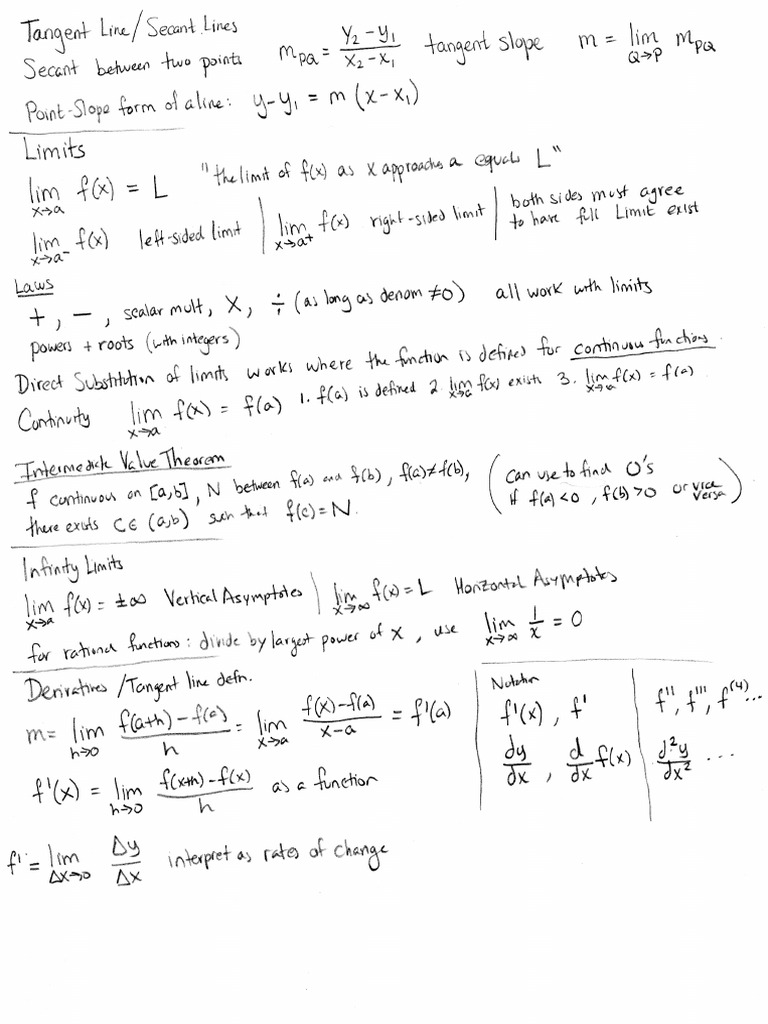 Tangent Line/Secant Lines
Secant between two points m_PQ = (y₂-y₁)/(x₂-x₁) tangent slope m = lim_{Q→P} m_PQ
Point-Slope form of a line: y-y₁ = m(x-x₁)
Limits
lim_{x→a} f(x) = L "the limit of f(x) as x approaches a equals L"
lim_{x→a⁻} f(x) left-sided limit | lim_{x→a⁺} f(x) right-sided limit | both sides must agree
to have full Limit exist
Laws
+, -, scalar mult, ×, ÷ (as long as denom ≠0) all work with limits
powers + roots (with integers)
Direct Substitution of limits works where the function is defined for continuous functions.
Continuity lim_{x→a} f(x) = f(a) 1. f(a) is defined 2. lim_{x→a} f(x) exists 3. lim_{x→a} f(x) = f(a)
Intermediate Value Theorem
f continuous on [a,b], N between f(a) and f(b), f(a)≠f(b), (can use to find 0's
there exists C∈(a,b) such that f(c)=N. if f(a)<0, f(b)>0 or vice versa)
Infinity Limits
lim_{x→a} f(x) = ±∞ Vertical Asymptotes | lim_{x→∞} f(x) = L Horizontal Asymptotes
for rational functions: divide by largest power of x, use lim_{x→∞} 1/x = 0
Derivatives/Tangent line defn.
m = lim_{h→0} (f(a+h)-f(a))/h = lim_{x→a} (f(x)-f(a))/(x-a) = f'(a)
f'(x) = lim_{h→0} (f(x+h)-f(x))/h as a function
f' = lim_{Δx→0} Δy/Δx interpret as rates of change
Notation
f'(x), f' | f'', f''', f⁽⁴⁾...
dy/dx, d/dx f(x) | d²y/dx² ...